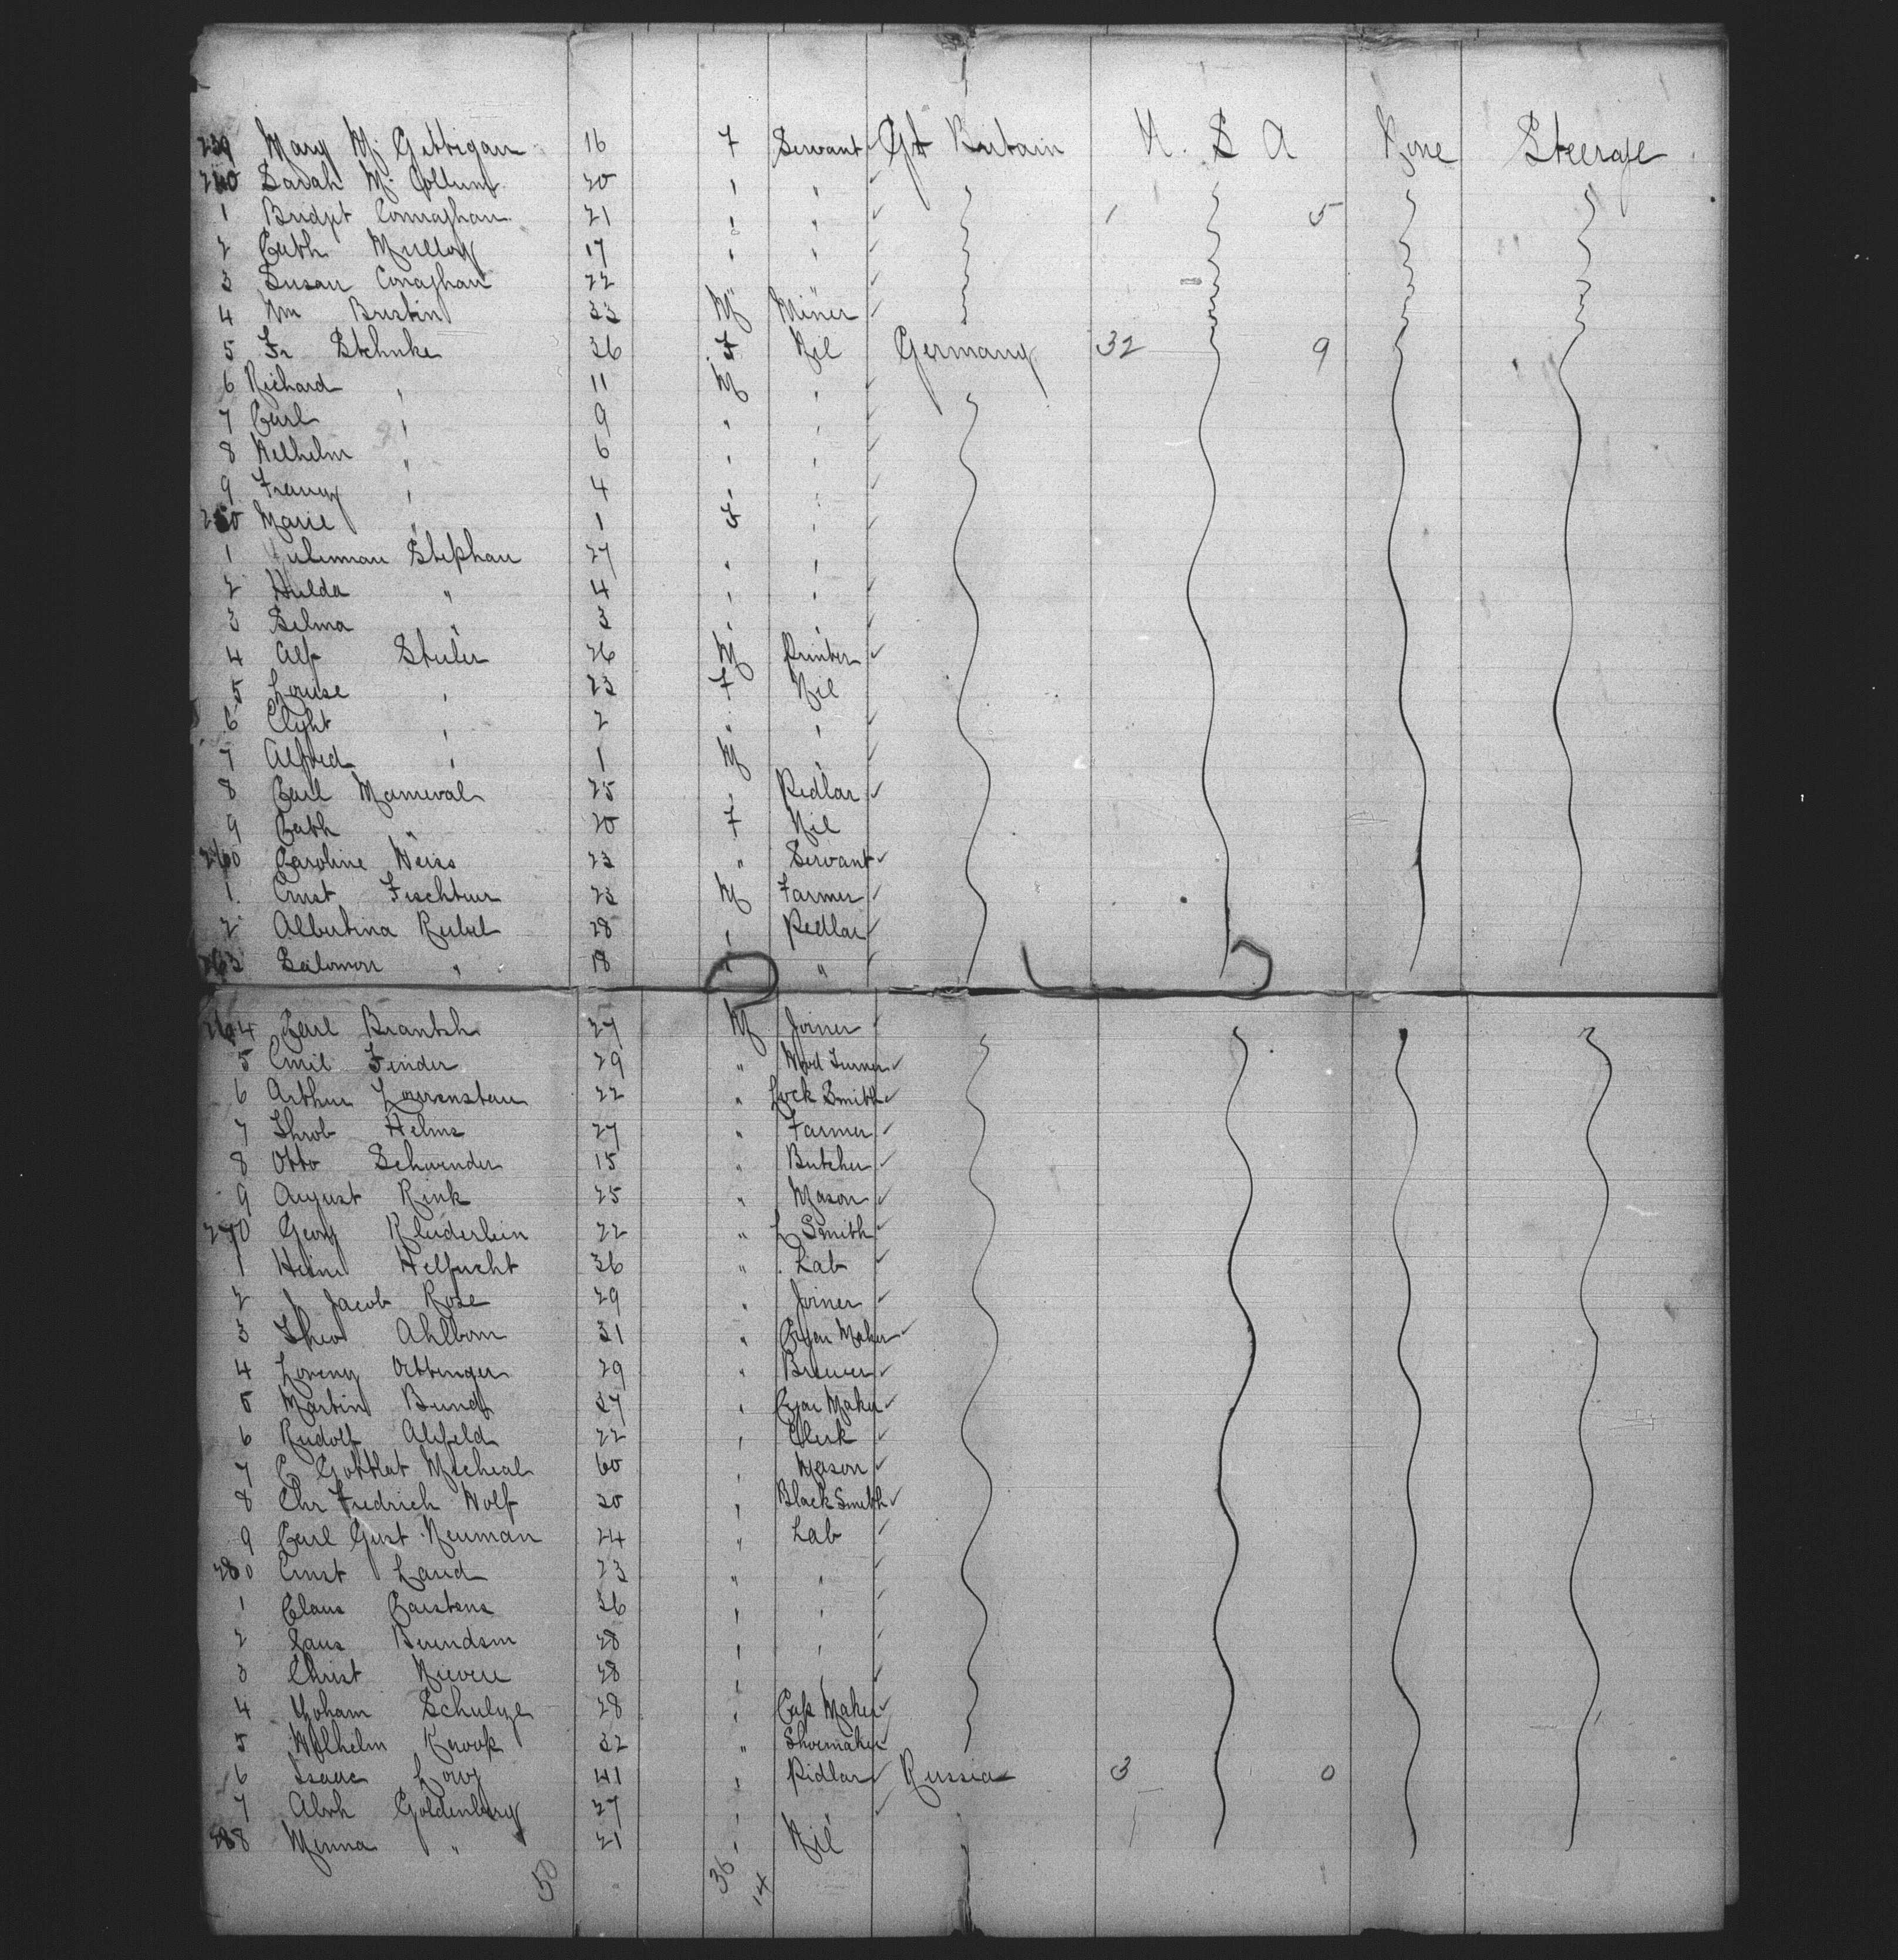 239 Mary Mc Gettigan 16 F Servant Gt Britain U. S A None Steerage
240 Sarah Mc Collum 20 " "
1 Bridget Connaghan 21 " " 1 5
2 Cath Mulloy 17 " "
3 Susan Conaghan 22 " "
4 Wm Breslin 33 M Miner
5 Fr Stehnke 36 F Nil Germany 32 9
6 Richard " 11 M "
7 Carl " 9 " "
8 Wilhelm " 6 " "
9 Franz " 4 " "
250 Marie " 1 F "
1 Stephan 27 " "
2 Hulda " 4 " "
3 Selma " 3 "
4 Alf Stuler 26 M Printer
5 Louise " 23 F Nil
6 " 2 " "
7 Alfred " 1 M "
8 Carl Manneval 25 " Pedlar
9 Cath " 20 F Nil
260 Caroline Weiss 23 " Servant
1 Ernst 23 M Farmer
2 Albertina Rubel 28 " Pedlar
263 Salomon " 18 " "
264 Carl Brantsh 27 M Joiner
5 Emil Finder 29 " Wood Turner
6 Arthur 22 " Lock Smith
7 Helms 27 " Farmer
8 Otto Schwender 15 " Butcher
9 August Rink 25 " Mason
270 Georg 22 " L Smith
1 Heinr 36 " Lab
2 J Jacob Rose 29 " Joiner
3 Theo Ahlborn 31 " Cigar Maker
4 Lorenz Ottinger 29 " Brewer
5 Martin Bundy 27 " Cigar Maker
6 Rudolf Ahfeld 22 " Clerk
7 C Gottlat Micheal 60 " Mason
8 Chr Fredrich Wolf 30 " Black Smith
9 Carl Gust Neuman 24 " Lab
280 Ernst Laud 23 " "
1 Claus Carstens 36 " "
2 Claus Berendsen 28 " "
3 Christ Nievere 28 "
4 Yoham Schulze 28 " Cap Maker
5 Wilhelm Knoop 32 " Shoemaker
6 Isaac Lowy 41 " Pedlar Russia 3 0
7 Abrh Goldenberg 27 " "
288 Menna " 21 " Nil
50 36 14